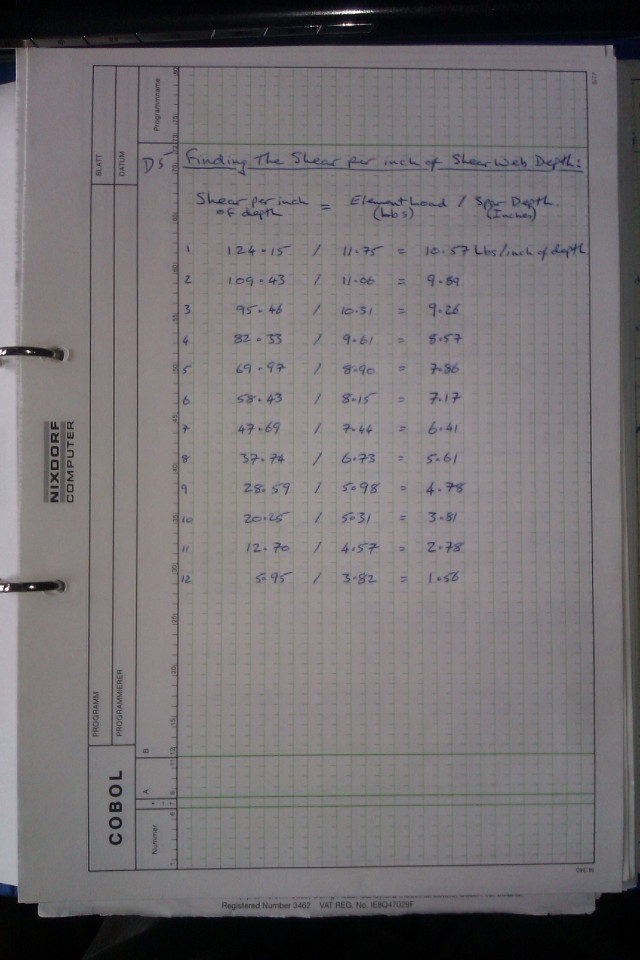 D5 Finding The Shear per inch of Shear Web Depth:
Shear per inch of depth = Element Load (Lbs) / Spar Depth. (Inches)
1 124.15 / 11.75 = 10.57 Lbs/inch of depth
2 109.43 / 11.06 = 9.89
3 95.46 / 10.31 = 9.26
4 82.33 / 9.61 = 8.57
5 69.97 / 8.90 = 7.86
6 58.43 / 8.15 = 7.17
7 47.69 / 7.44 = 6.41
8 37.74 / 6.73 = 5.61
9 28.59 / 5.98 = 4.78
10 20.25 / 5.31 = 3.81
11 12.70 / 4.57 = 2.78
12 5.95 / 3.82 = 1.56
NIXDORF
COMPUTER
COBOL
PROGRAMM
PROGRAMMIERER
BLATT
DATUM
Programmname
Nummer
A
B
Registered Number 3462 VAT REG. No. IE8Q47029F